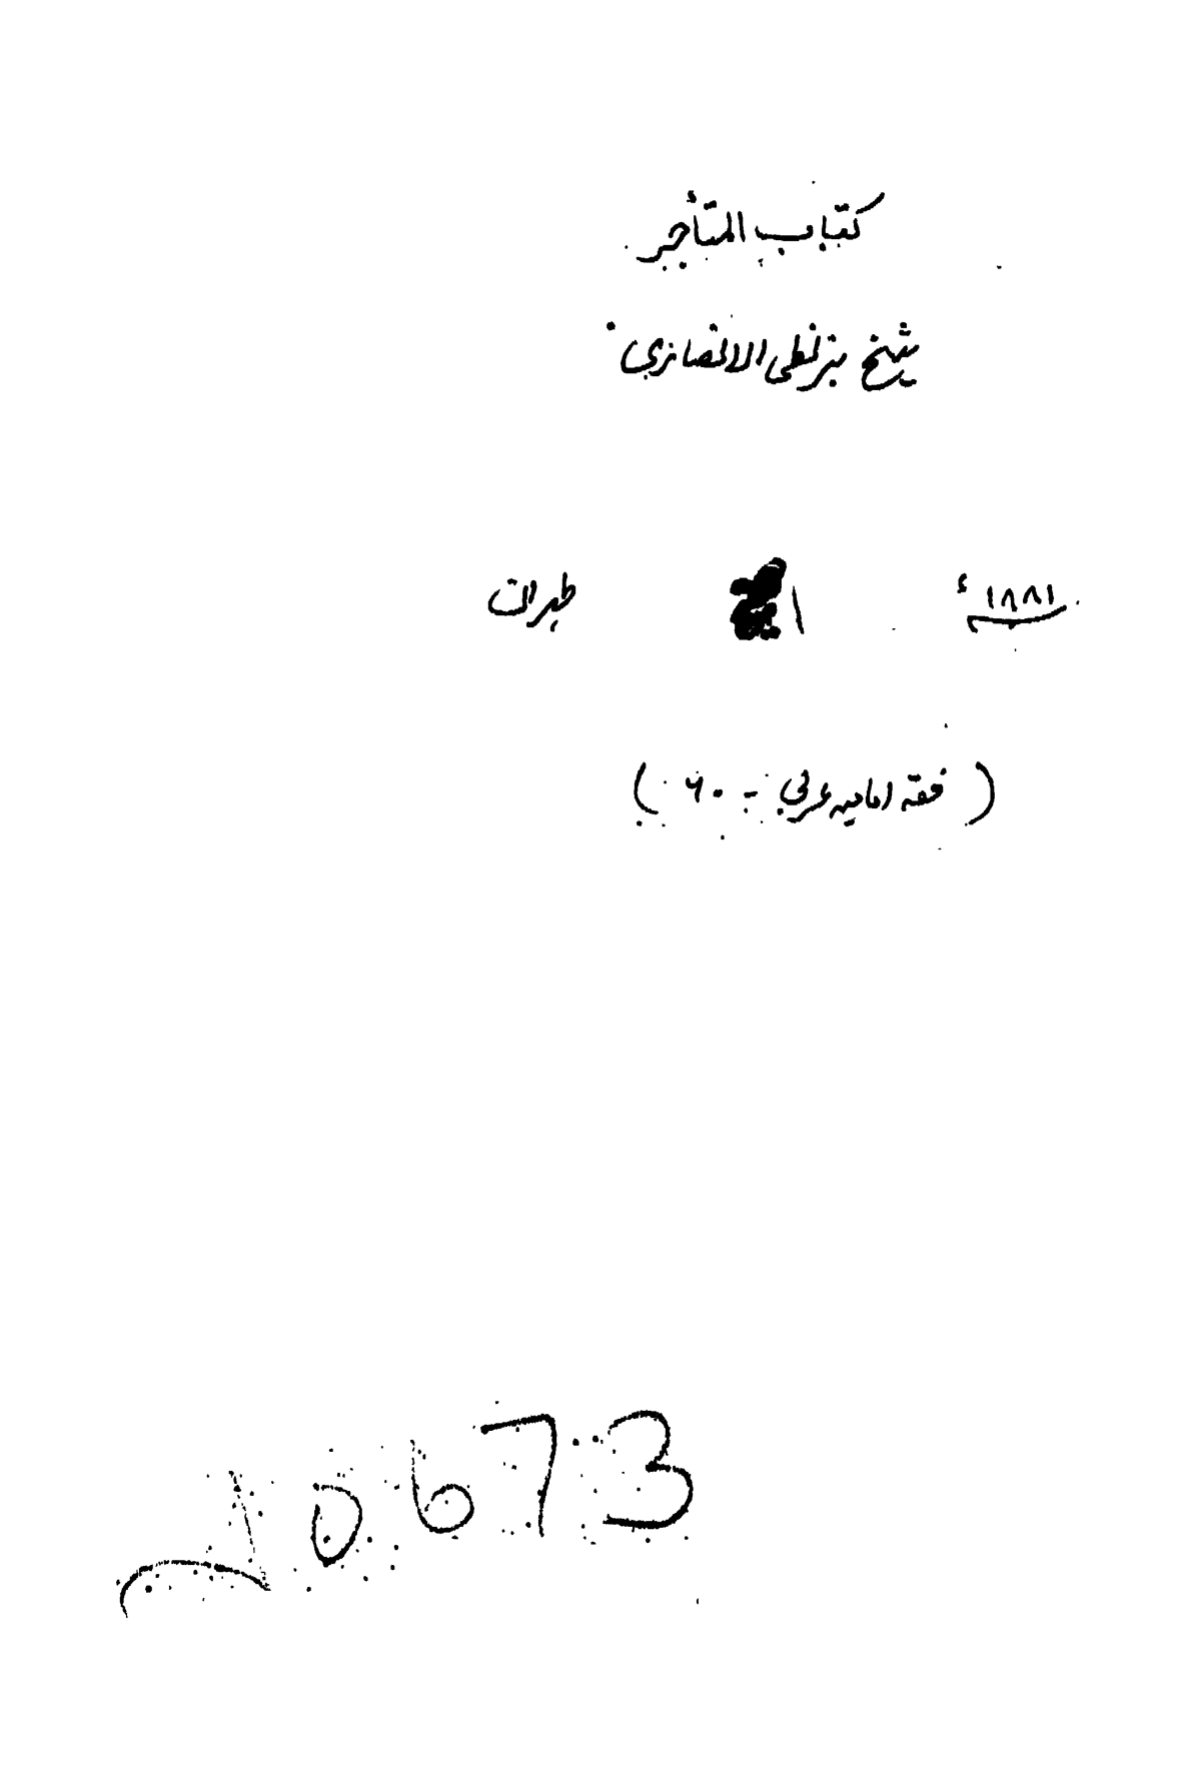 كتاب المتأجر
شيخ مرتضى الانصاري
١٨٨١ء طهران
( فقه اماميه عربي - ٦٠ )
10673